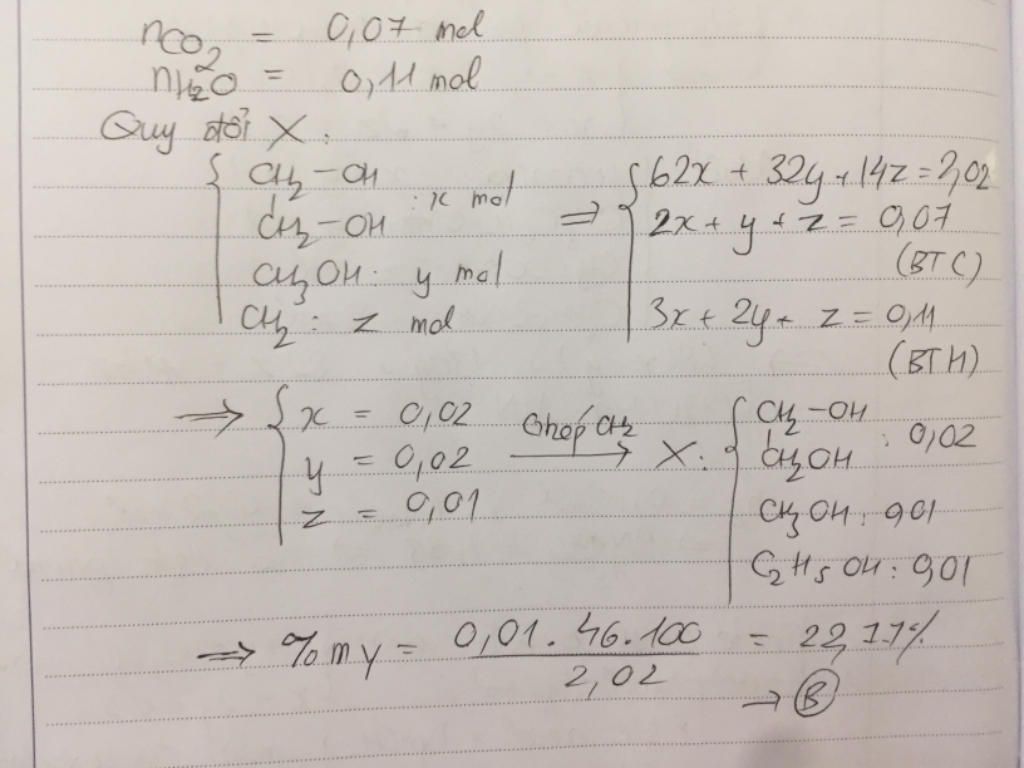 nCO2 = 0,07 mol
nH2O = 0,11 mol
Quy đổi X:
CH2-OH
CH2-OH : x mol
CH3OH: y mol
CH2: z mol
=> 62x + 32y + 14z = 2,02
2x + y + z = 0,07
(BTC)
3x + 2y + z = 0,11
(BTH)
=> x = 0,02
y = 0,02
z = 0,01
Ghép CH2 → X:
CH2-OH
CH2OH : 0,02
CH3OH: 0,01
C2H5OH: 0,01
=> %mY = 0,01.46.100 / 2,02 = 22,77%
→ B